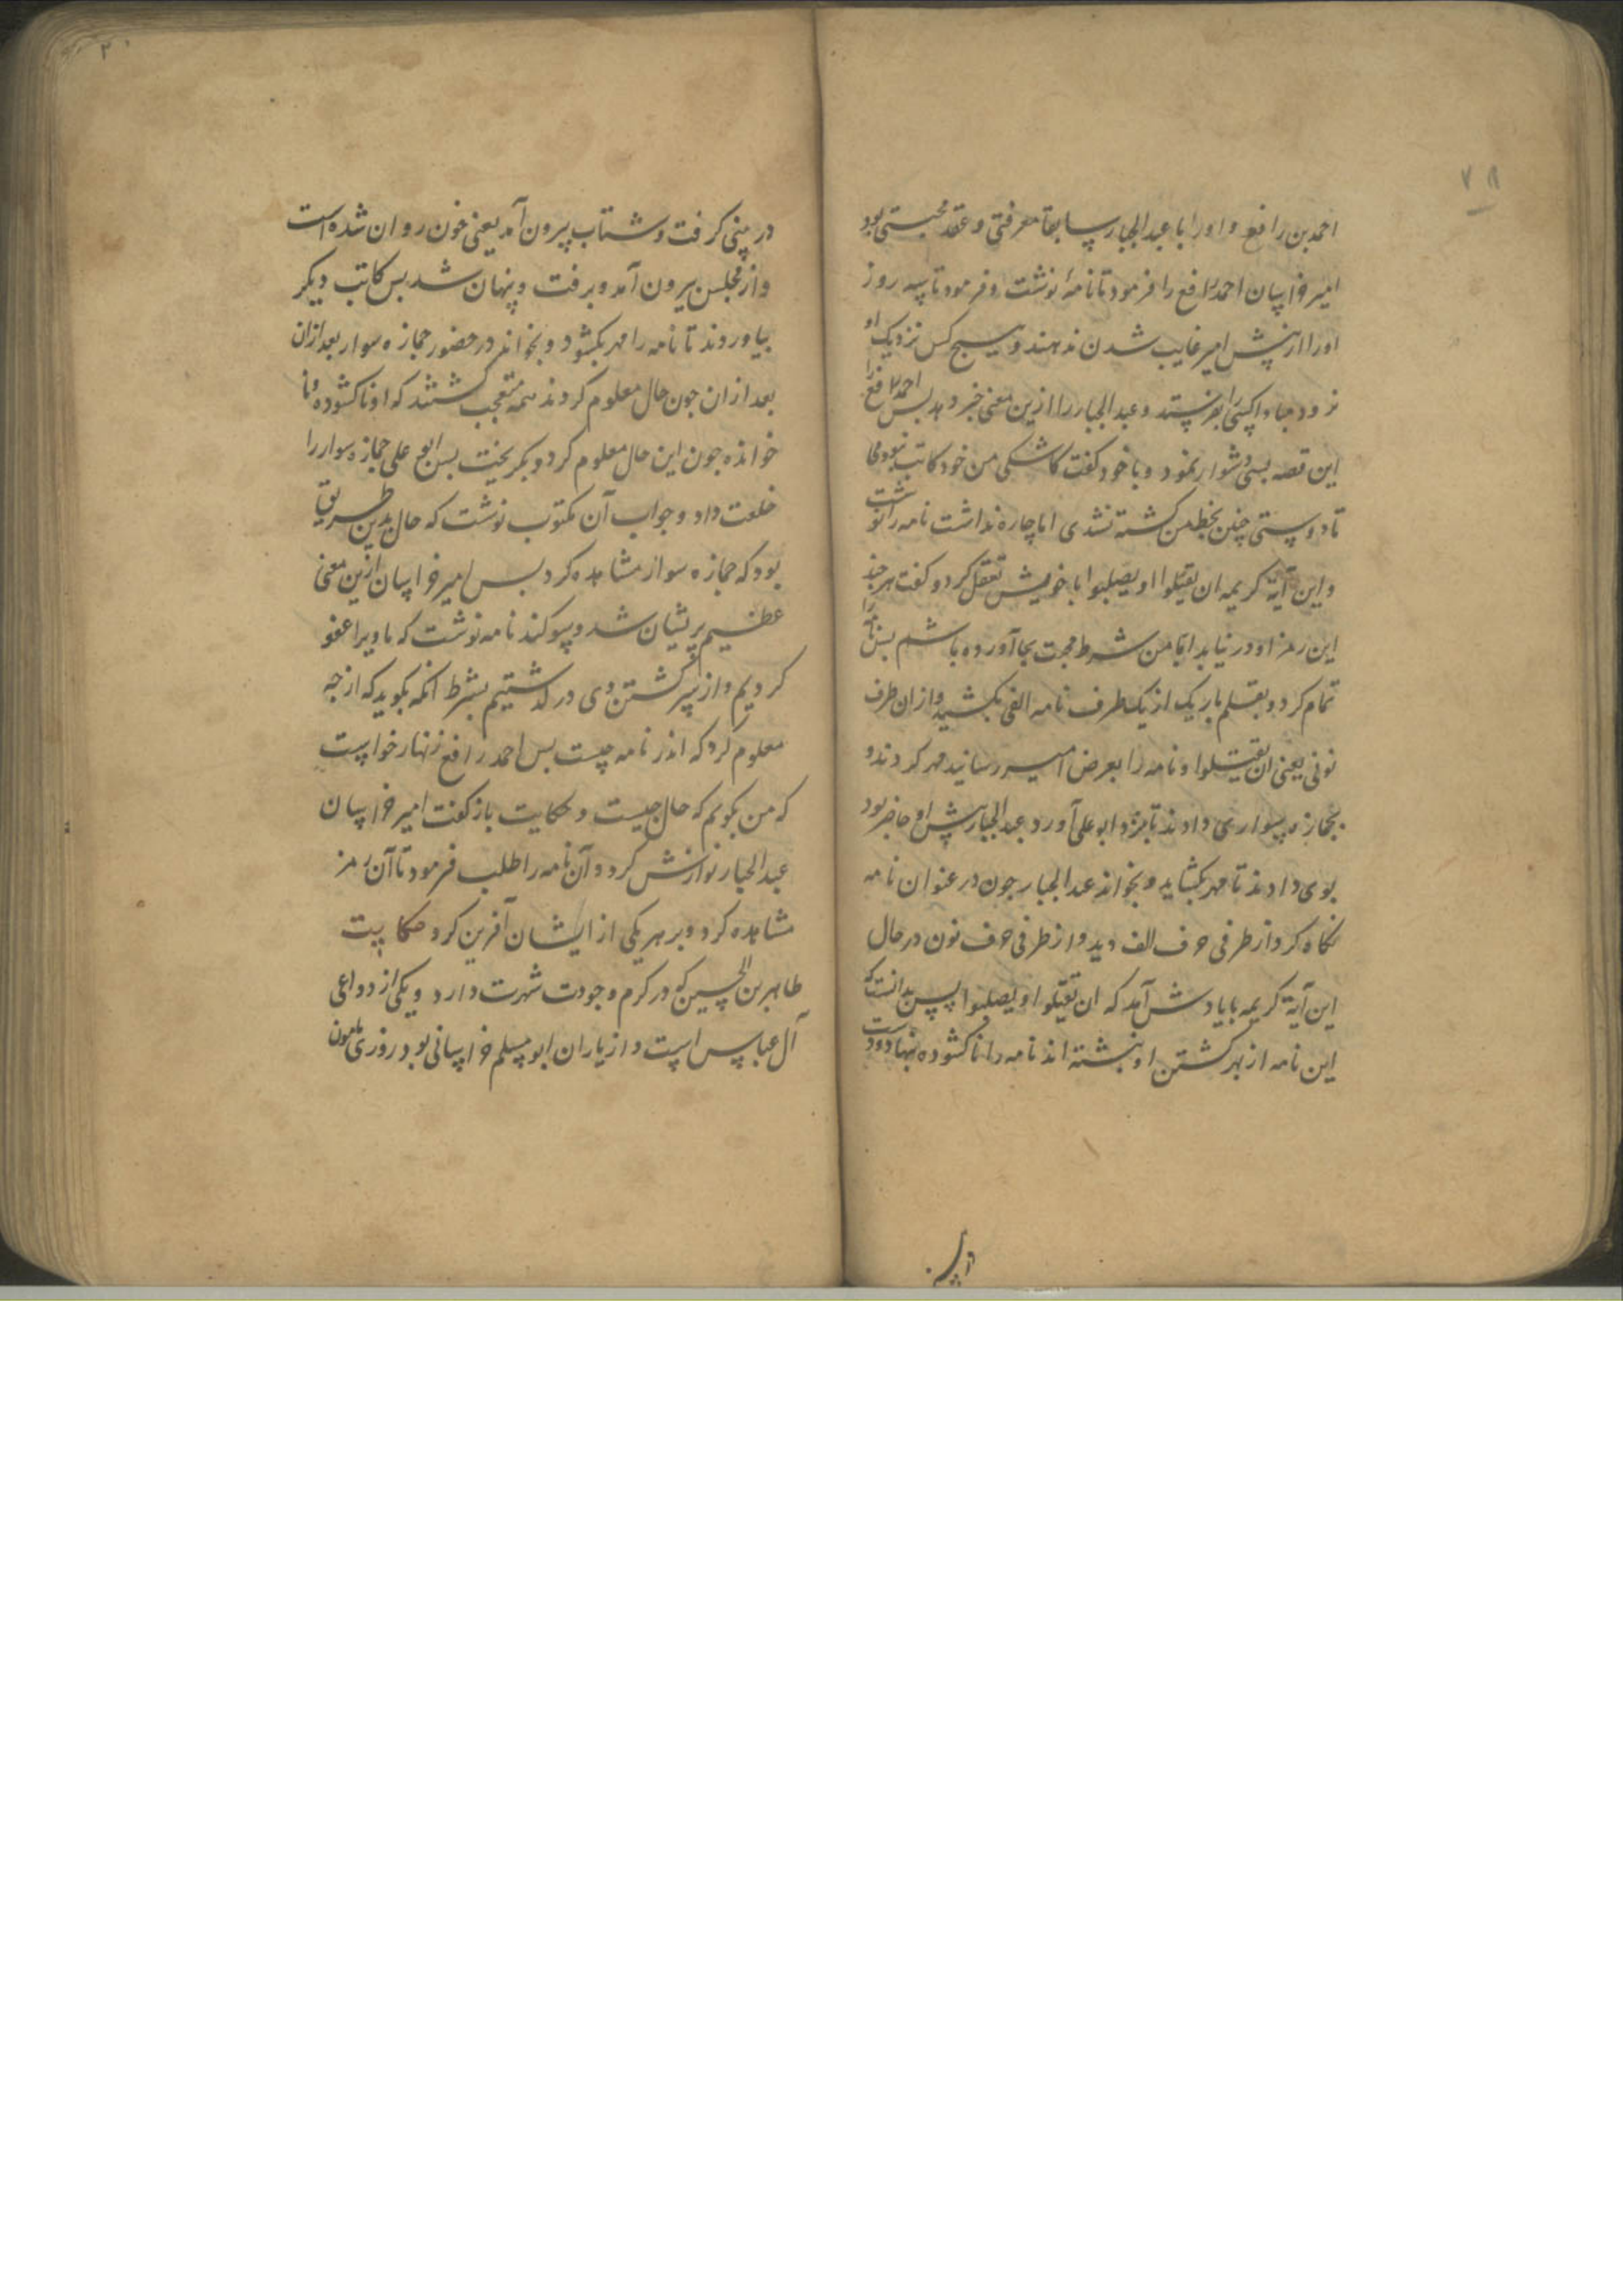 ۷۸
احمد بن رافع و اورا با عبد الجبار سابقا معرفتی و عقد محبتی بود
امیر خراسان احمد رافع را فرمود تا نامۀ نوشت و فرمود تا سه روز
اورا از پیش امیر غایب شدن ندهند و هیچ کس نزدیک او
نرود مبادا کسی را بفرستد و عبد الجبار را ازین معنی خبر دهد بس احمد رافع را
این قصه بسی دشوار نمود و با خود گفت کاشکی من خود کاتب نبودمی
تا دوستی چنین بخط من کشته نشدی اما چاره نداشت نامه را نوشت
و این آیة کریمه ان یقتلوا او یصلبوا با خویش تعقل کرد و گفت هر چند
این رمز او در نیابد اما من شرط محبت بجا آورده باشم بس نامه را
تمام کرد و بقلم باریک از یک طرف نامه الفی بکشید و از ان طرف
نونی یعنی ان یقتلوا و نامه را بعرض امیر رسانید مهر کردند و
بجمازه سواری دادند تا بنزد ابو علی آورد عبد الجبار پیش او حاضر بود
بوی دادند تا مهر بگشاید و بخواند عبد الجبار جون در عنوان نامه
نگاه کرد از طرفی حرف الف دید و از طرفی حرف نون در حال
این آیة کریمه با یادش آمد که ان یقتلوا او یصلبوا پس بدانست که
این نامه از بهر کشتن او نبشته اند نامه را ناکشوده بنهاد و دست
در بینی
۲
در بینی گرفت و شتاب بیرون آمد یعنی خون روان شده است
و از مجلس بیرون آمد و برفت و پنهان شد بس کاتب دیگر
بیاوردند تا نامه را مهر بگشود و بخواند در حضور جمازه سوار بعد ازان
بعد از ان جون حال معلوم کردند همه متعجب گشتند که او ناکشوده و نا
خوانده جون این حال معلوم کرد و بگریخت بس ابو علی جمازه سوار را
خلعت داد و جواب آن مکتوب نوشت که حال بدین طریق
بود که جمازه سوار مشاهده کرد بس امیر خراسان ازین معنی
عظیم پریشان شد و سوکند نامه نوشت که ما ویرا عفو
کردیم و از سر کشتن وی در گذشتیم بشرط انکه بگوید که از جه
معلوم کرد که اندر نامه چیست بس احمد رافع زنهار خواست
که من بگویم که حال جیست و حکایت باز گفت امیر خراسان
عبد الجبار نوازش کرد و آن نامه را طلب فرمود تا آن رمز
مشاهده کرد و بر هر یکی از ایشان آفرین کرد حکایت
طاهر بن الحسین که در کرم و جودت شهرت دارد و یکی از دواعی
آل عباس است و از یاران ابو مسلم خراسانی بود روزی مامون